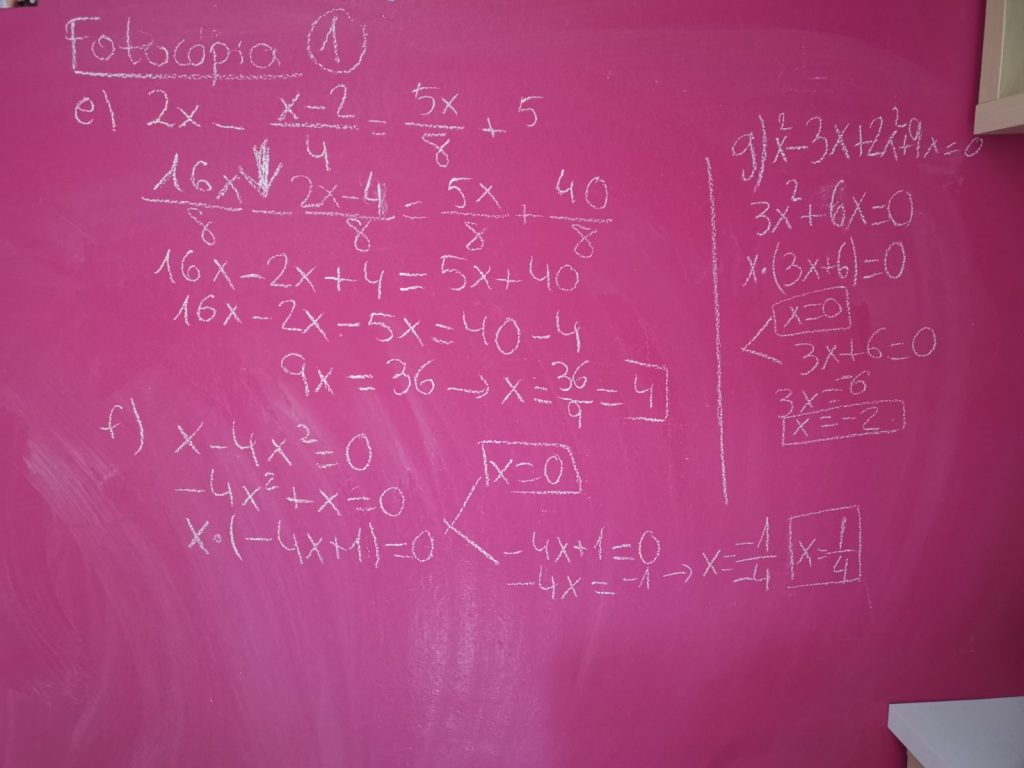 Fotocópia ①
e) 2x - (x-2)/4 = 5x/8 + 5
16x/8 - (2x-4)/8 = 5x/8 + 40/8
16x - 2x + 4 = 5x + 40
16x - 2x - 5x = 40 - 4
9x = 36 → x = 36/9 = 4
f) x - 4x² = 0
-4x² + x = 0
x·(-4x+1) = 0
x = 0
-4x+1 = 0
-4x = -1 → x = -1/-4 x = 1/4
g) x² - 3x + 2x² + 9x = 0
3x² + 6x = 0
x·(3x+6) = 0
x = 0
3x + 6 = 0
3x = -6
x = -2